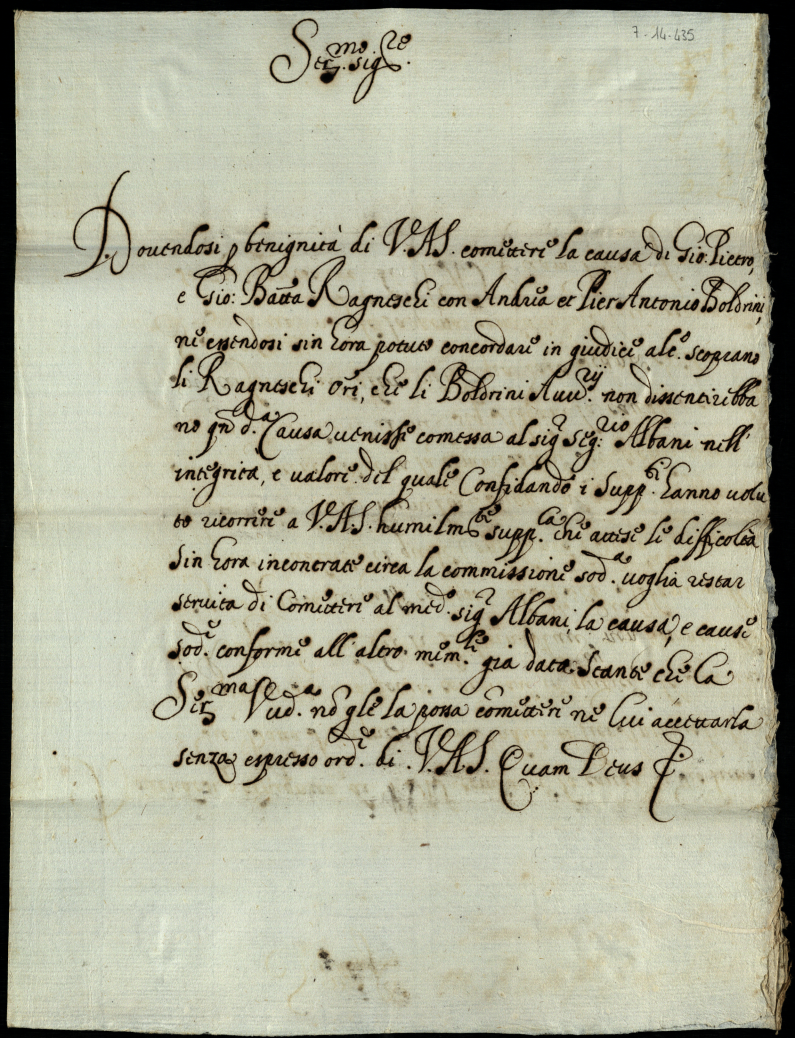 7-14-435
Ser.mo Sig.re
Dovendosi p benignità di V.A.S. comettere la causa di Gio: Pietro,
e Gio: Batta Ragneschi con Andrea et Pier Antonio Boldrini,
ne essendosi sin hora potuto concordare in giudice alc.o scoprano
li Ragneschi Ori, che li Boldrini Auu.rij non dissentirebba
no qn d.a Causa venisse comessa al sig.r Seg.rio Albani nell'
integrità, e valore del quale Confidando i Supp.ti hanno volu
to ricorrere a V.A.S. humilm.te supp.ca che attese le difficoltà
sin hora incontrate circa la commissione sod.a voglia restar
servita di Comettere al med.o sig.r Albani, la causa, e cause
sod.e conforme all'altro mem.le già data. Stante che la
Ser.ma Vud.a nō gle la possa comettere ne lui accettarla
senza espresso ord.e di V.A.S. Quam Deus